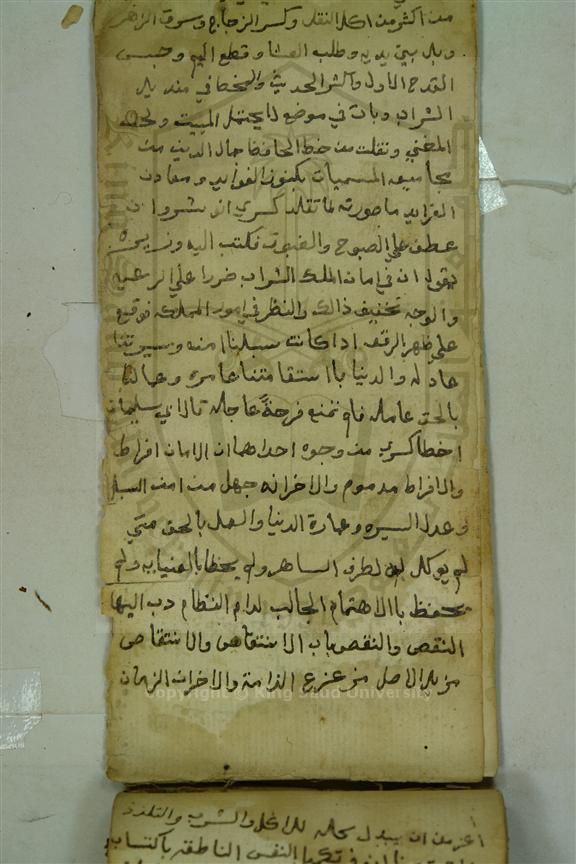 من اكثر من اكل النقل وكسر الزجاج وسرق الزهر
وبل بين يديه وطلب العشا وقطع اليم وحبس
القدح الاول واكثر الحديث والمخط في منديل
الشراب وبات في موضع لا يحتمل المبيت ولحن
المغني ونقلت من خط الحافظ جمال الدين من
مجاميعه المسميات بكنوز الفوايد ومعادن
الفرايد ما صورته لما تقلد كسري انوشروان
عطف علي الصبوح والغبوق فكتب اليه وزيره
يقول ان في ادمان الملك الشراب ضررا علي الرعيه
والوجه تخفيف ذالك والنظر في امور المملكه فوقع
علي ظهر الرقعه اذا كانت سبلنا امنه وسيرتنا
عادله والدنيا باستقامتنا عامره وعمالنا
بالحق عامله فلم تمنع فرحة عاجله قال ابي سليمان
اخطا كسري من وجوه احداهما ان الادمان افراط
والافراط مدموم والاخر انه جهل من امن السبل
وعدل السيره وعمارة الدنيا والعمل بالحق متي
لم يوكل لها لطرف الساهر ولم يحظا بالعنايه ولم
تحفظ باالاهتمام الجالب لدام النظام دب اليها
النقص والنقص باب الانتقاص والانتقاص
مزيل الاصل مزعزع الدامة والاخر ان الزمان
Copyright © King Saud University
اعز من ان يبدل كله للاكل والشرب والتلذذ
النفس الناطقه باكتساب